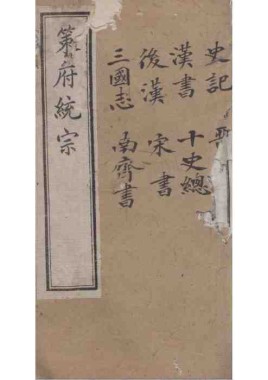 史記
漢書 十史總
後漢 宋書
三國志 南齊書
策府統宗